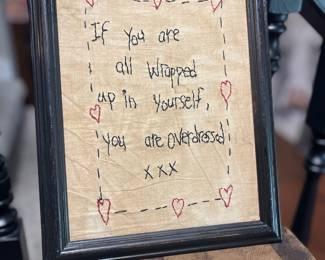 If you are
all wrapped
up in yourself,
you are overdressed
xxx